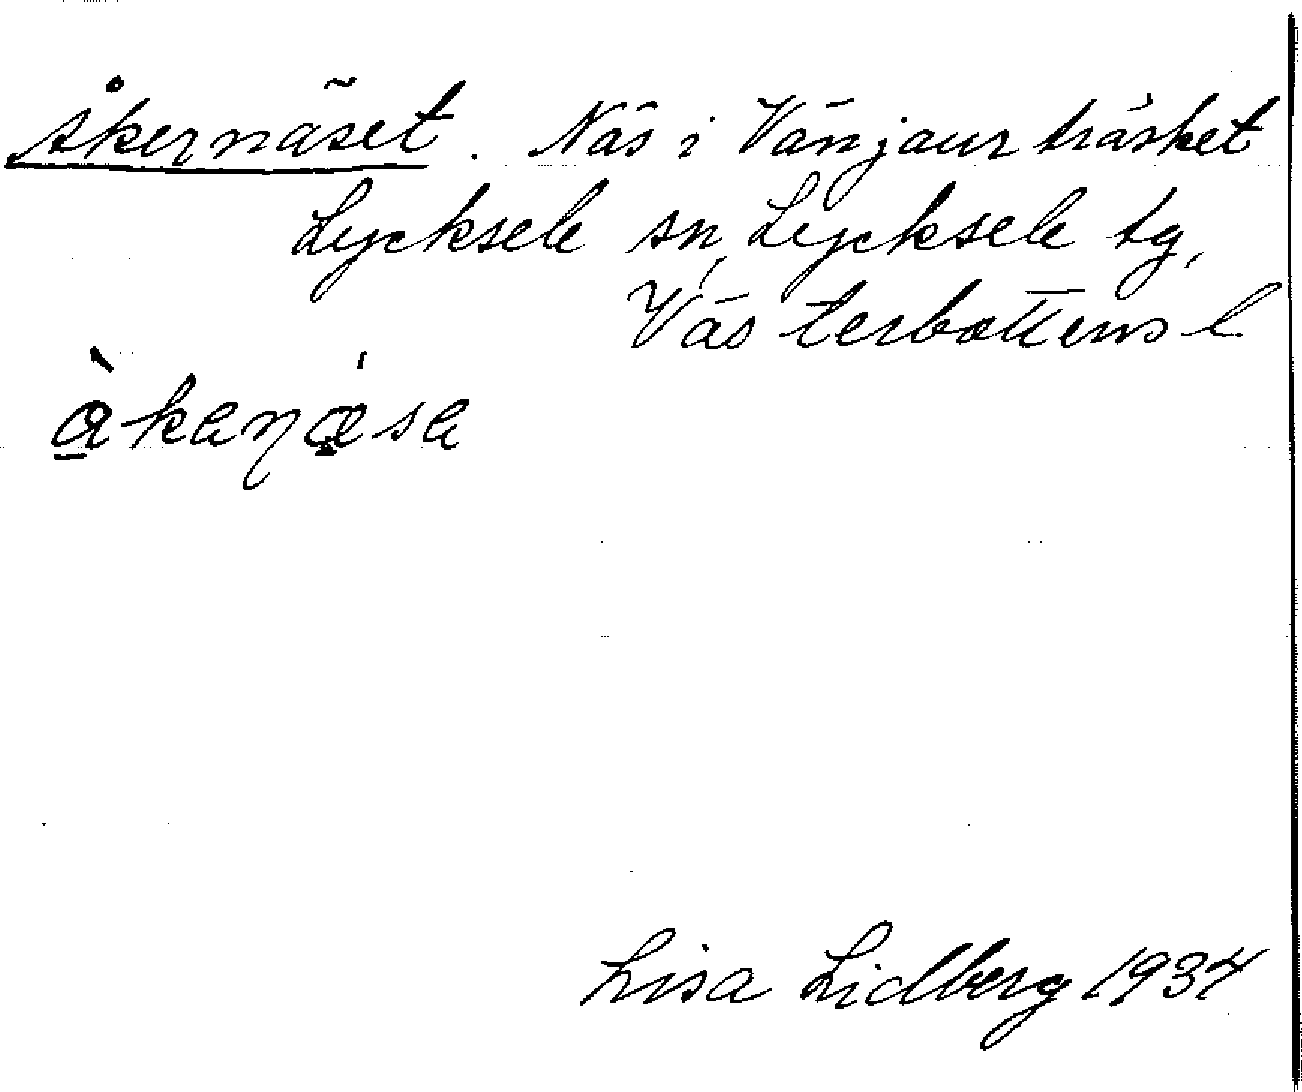 Åkernäset. Näs i Vänjaurträsket
Lycksele sn, Lycksele tg,
Västerbottens l
Lisa Lidberg 1934